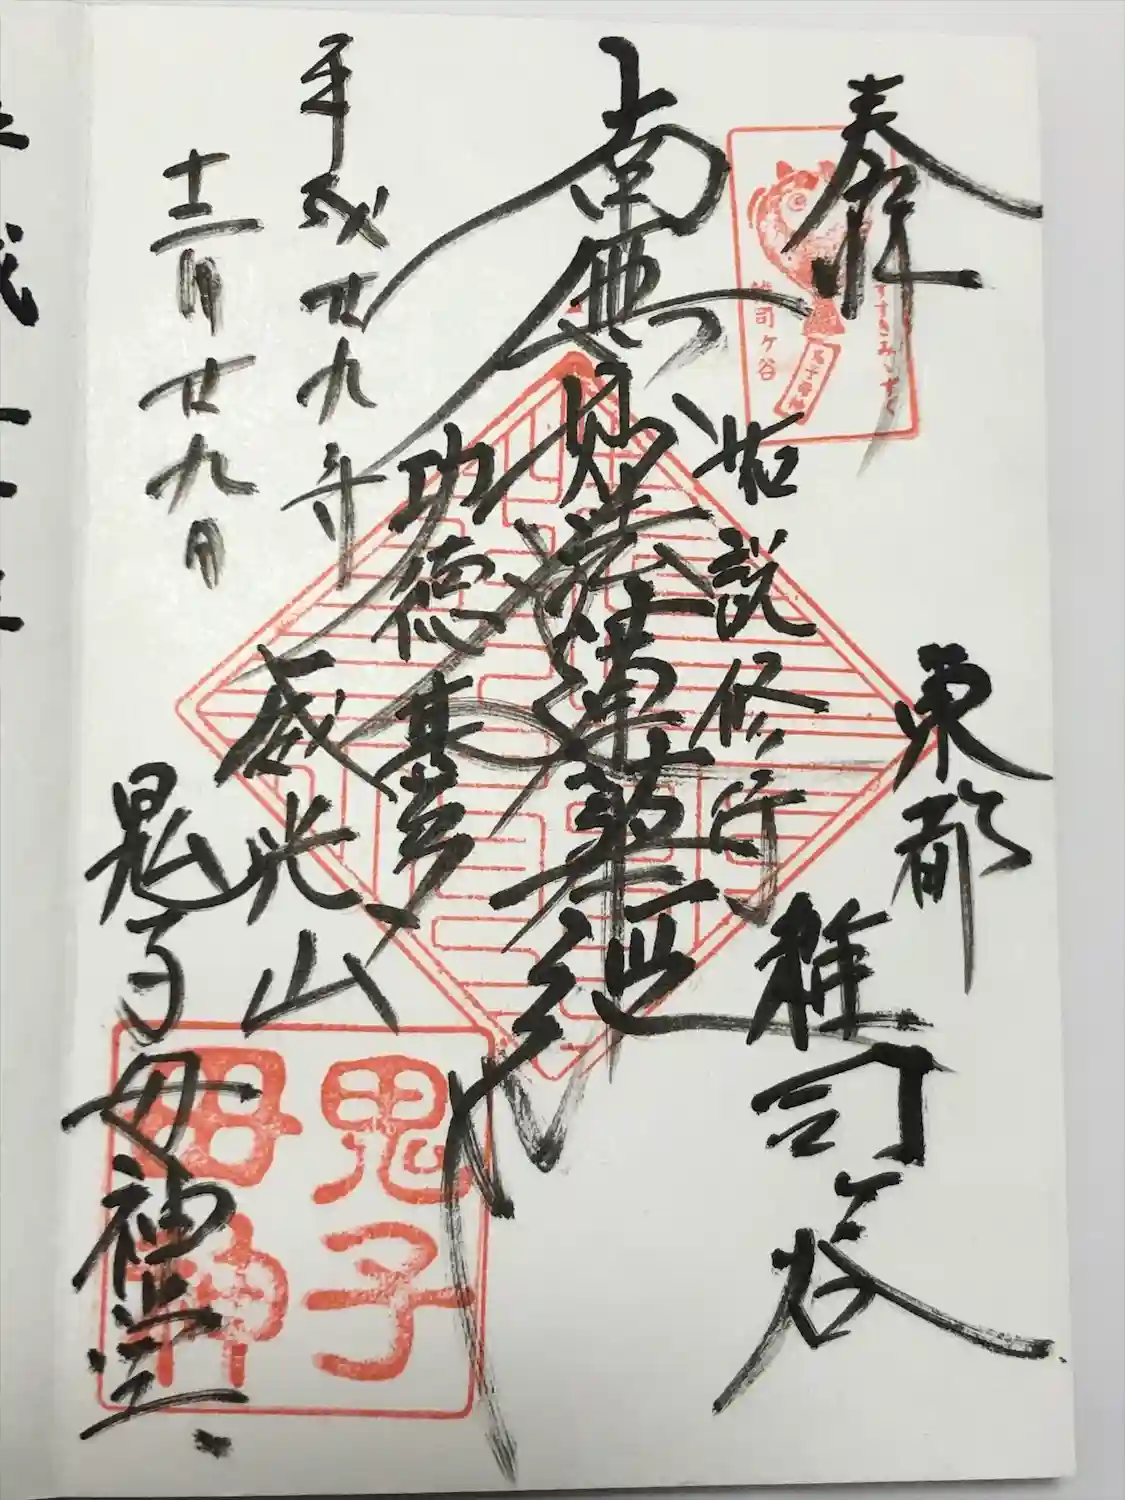 奉拝
すすきみゝずく
雑司ヶ谷
東都
雑司ヶ谷
如説修行
南無妙法蓮華経
功徳甚多
威光山
鬼子母神堂
平成廿九年
十二月廿九日
鬼子
母神